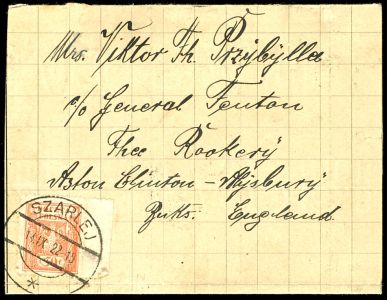 Mrs. Viktor Th. Przybylla
c/o General Fenton
Thee Rookery
Aston Clinton – Aylsbury
Bucks. England
SZARLEJ
IX 22